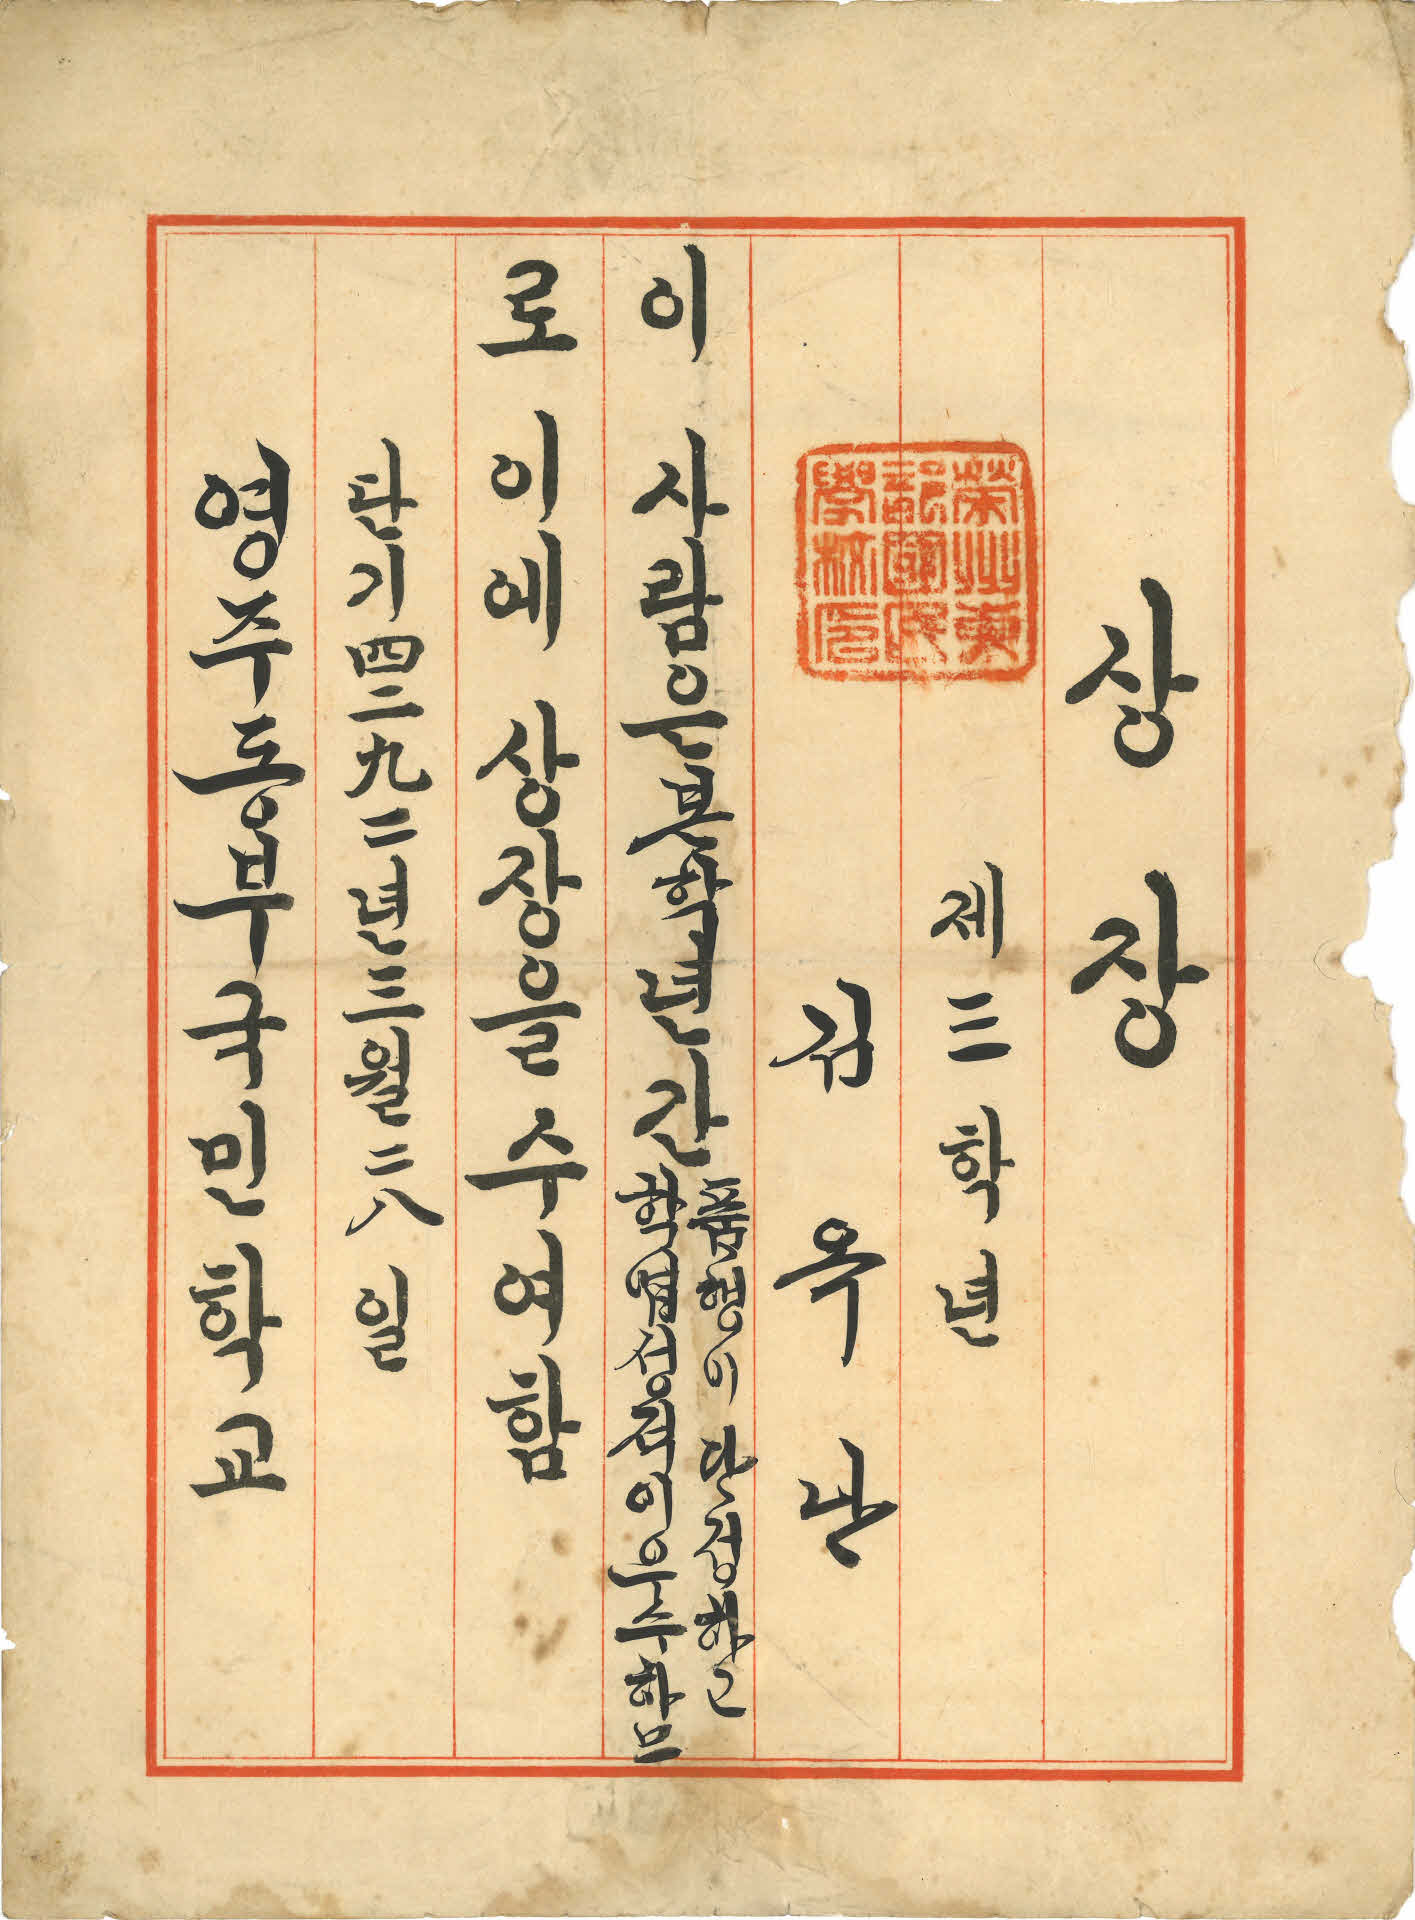 상장
榮州東
部國民
學校印
제三학년
김옥난
이 사람은 본학년간
품행이 단정하고
학업성적이 우수하므
로 이에 상장을 수여함
단기四二九二년三월二八일
영주동부국민학교